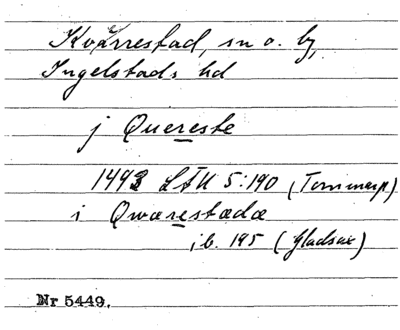 Kvärrestad, sn o. by,
Ingelstads hd
j Quereste
1493 LÄU 5:190 (Tommarp)
i Qwærestædæ
ib. 195 (Gladsax)
Nr 5449.